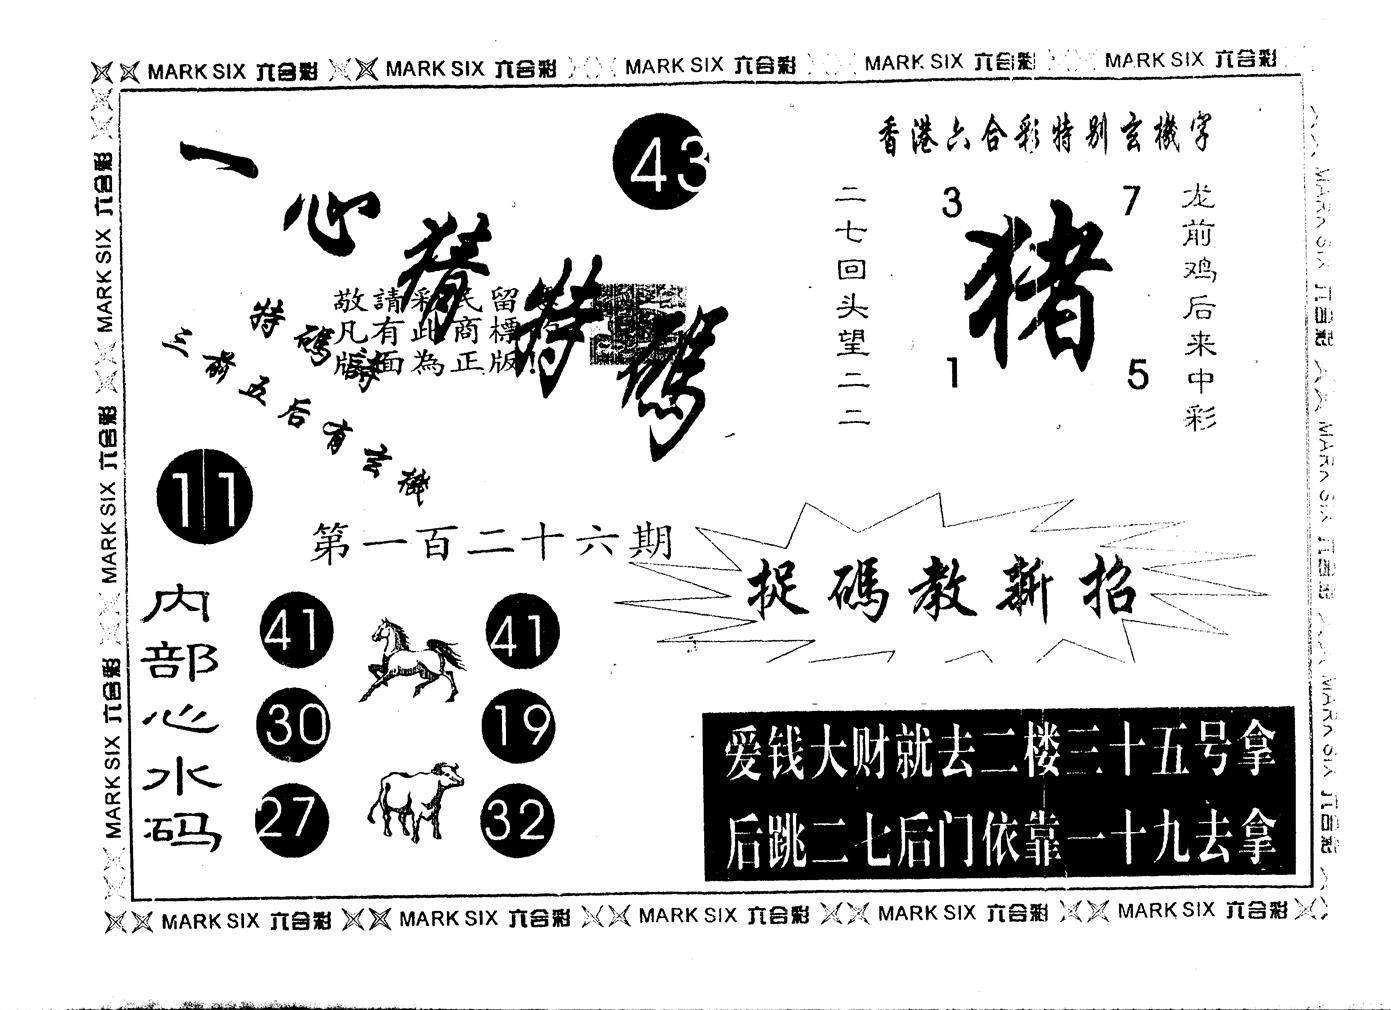 MARK SIX 六合彩 MARK SIX 六合彩 MARK SIX 六合彩 MARK SIX 六合彩 MARK SIX 六合彩
一心猜特碼
43
香港六合彩特别玄機字
二七回头望二二
3 7
猪
1 5
龙前鸡后来中彩
敬請彩民留意
凡有此商標的
版面為正版!
特碼詩
三前五后有玄機
11
第一百二十六期
捉碼教新招
内部心水码
41 41
30 19
27 32
爱钱大财就去二楼三十五号拿
后跳二七后门依靠一十九去拿
MARK SIX 六合彩 MARK SIX 六合彩 MARK SIX 六合彩
MARK SIX 六合彩 MARK SIX 六合彩 MARK SIX 六合彩
MARK SIX 六合彩 MARK SIX 六合彩 MARK SIX 六合彩 MARK SIX 六合彩 MARK SIX 六合彩